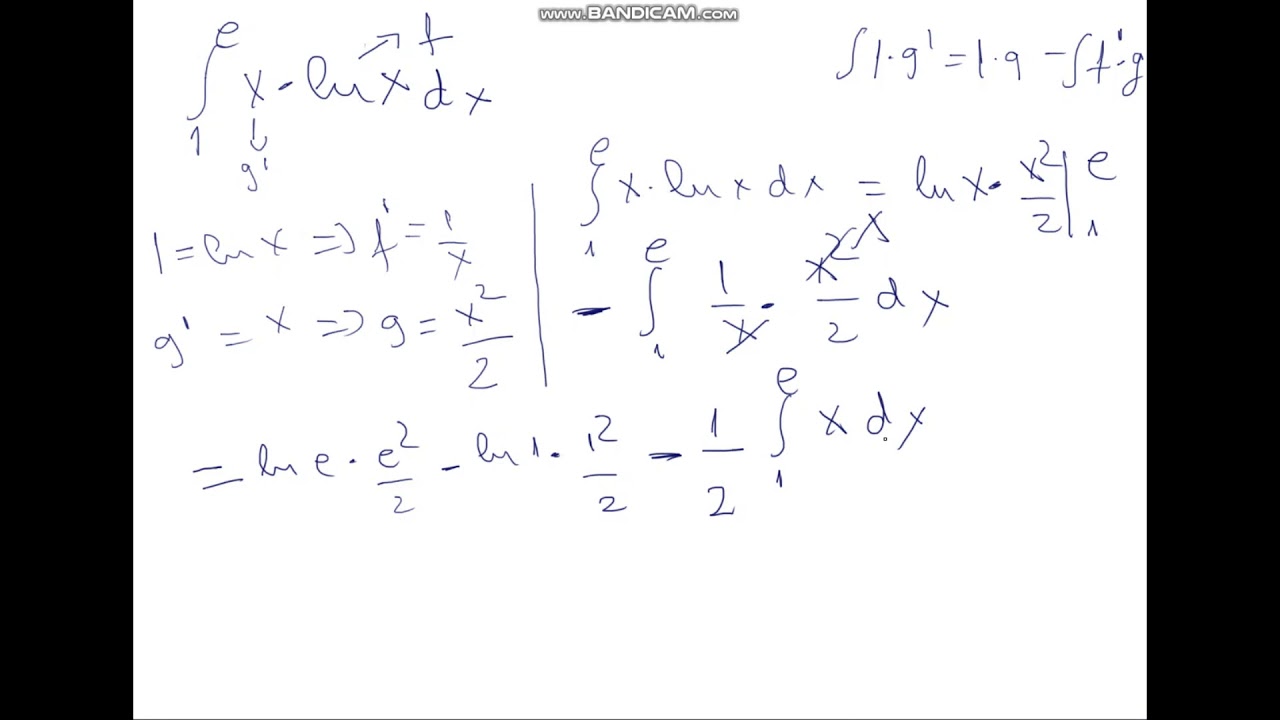 www.BANDICAM.com
∫₁ᵉ x · ln x dx
f
g'
∫ f · g' = f · g − ∫ f' · g
f = ln x => f' = 1/x
g' = x => g = x²/2
∫₁ᵉ x · ln x dx = ln x · x²/2 |₁ᵉ
− ∫₁ᵉ 1/x · x²/2 dx
= ln e · e²/2 − ln 1 · 1²/2 − 1/2 ∫₁ᵉ x dx